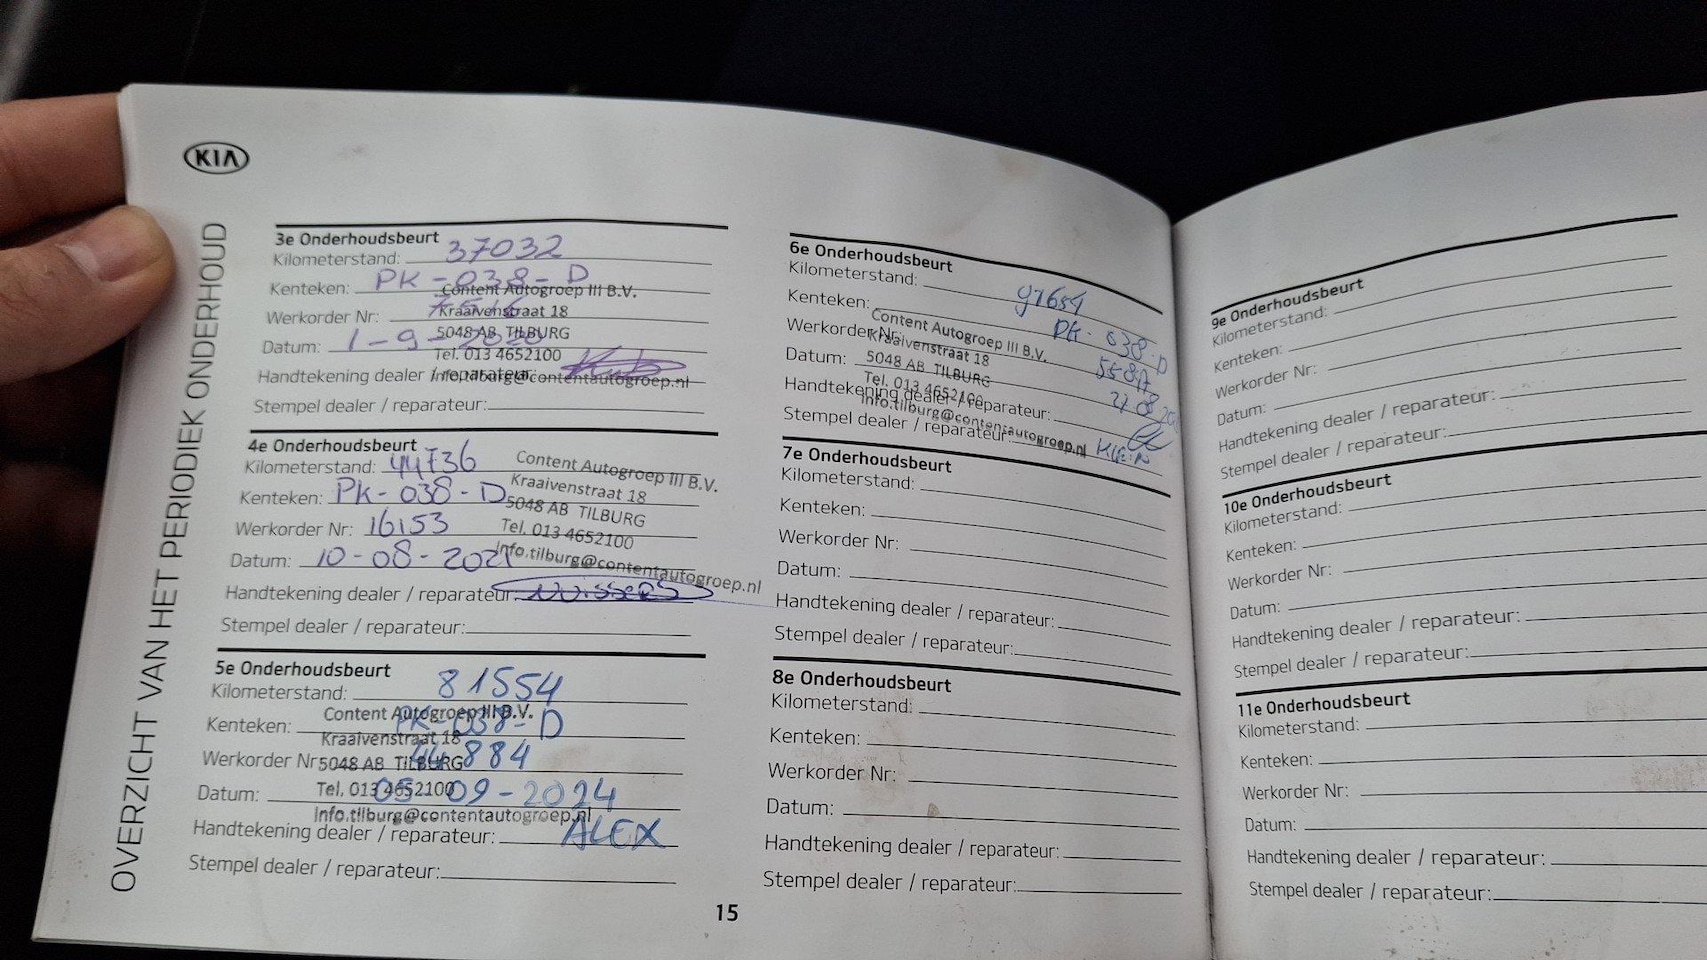 KIA
OVERZICHT VAN HET PERIODIEK ONDERHOUD
3e Onderhoudsbeurt
Kilometerstand: 37032
Kenteken: PK-038-D
Content Autogroep III B.V.
Werkorder Nr:
Kraaivenstraat 18
5048 AB TILBURG
Datum: 1-9-2020
Tel. 013 4652100
Handtekening dealer / reparateur:
info.tilburg@contentautogroep.nl
Stempel dealer / reparateur:
4e Onderhoudsbeurt
Kilometerstand: 44736
Content Autogroep III B.V.
Kenteken: PK-038-D
Kraaivenstraat 18
5048 AB TILBURG
Werkorder Nr: 16153
Tel. 013 4652100
Datum: 10-08-2021
info.tilburg@contentautogroep.nl
Handtekening dealer / reparateur:
Stempel dealer / reparateur:
5e Onderhoudsbeurt
Kilometerstand: 81554
Content Autogroep III B.V.
Kenteken: PK-038-D
Kraaivenstraat 18
Werkorder Nr: 44884
5048 AB TILBURG
Datum: 05-09-2024
Tel. 013 4652100
info.tilburg@contentautogroep.nl
Handtekening dealer / reparateur: ALEX
Stempel dealer / reparateur:
15
6e Onderhoudsbeurt
Kilometerstand: 91654
Kenteken: PK-038-D
Content Autogroep III B.V.
Werkorder Nr:
Kraaivenstraat 18
Datum:
5048 AB TILBURG
Tel. 013 4652100
Handtekening dealer / reparateur:
info.tilburg@contentautogroep.nl
Stempel dealer / reparateur:
7e Onderhoudsbeurt
Kilometerstand:
Kenteken:
Werkorder Nr:
Datum:
Handtekening dealer / reparateur:
Stempel dealer / reparateur:
8e Onderhoudsbeurt
Kilometerstand:
Kenteken:
Werkorder Nr:
Datum:
Handtekening dealer / reparateur:
Stempel dealer / reparateur:
9e Onderhoudsbeurt
Kilometerstand:
Kenteken:
Werkorder Nr:
Datum:
Handtekening dealer / reparateur:
Stempel dealer / reparateur:
10e Onderhoudsbeurt
Kilometerstand:
Kenteken:
Werkorder Nr:
Datum:
Handtekening dealer / reparateur:
Stempel dealer / reparateur:
11e Onderhoudsbeurt
Kilometerstand:
Kenteken:
Werkorder Nr:
Datum:
Handtekening dealer / reparateur:
Stempel dealer / reparateur: